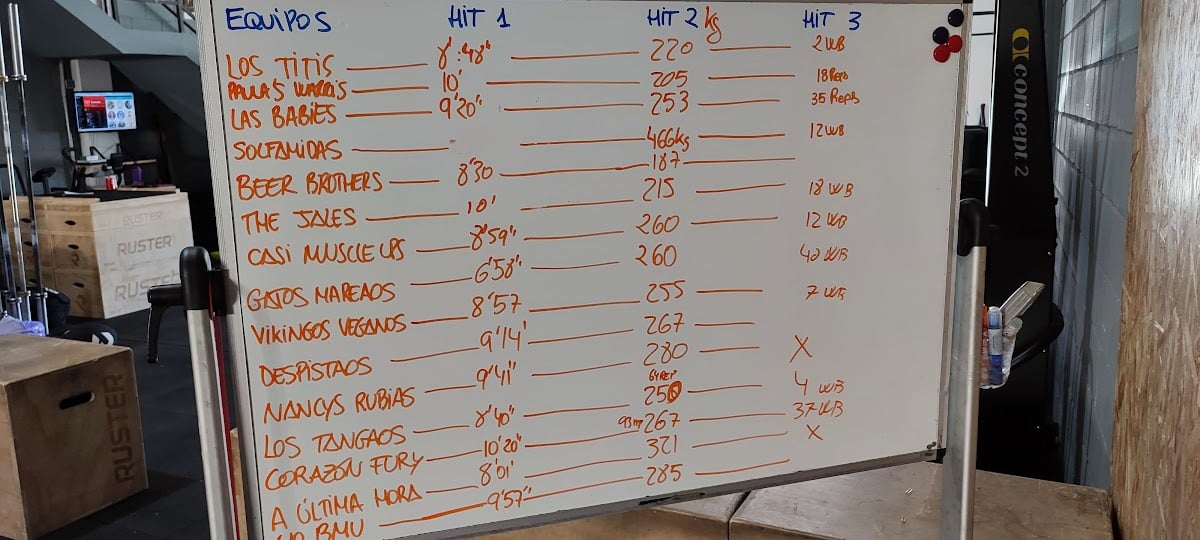 EQUIPOS HIT 1 HIT 2 kg HIT 3
LOS TITIS 8':48" 220 2 WB
PAULA'S WARRIS 10' 205 18 Reps
LAS BABIES 9'20" 253 35 Reps
SOLFAMIDAS - 466kg 12 WB
BEER BROTHERS 8'30 187
THE JALES 10' 215 18 WB
CASI MUSCLE UPS 8'59" 260 12 WB
GATOS MAREAOS 6'58" 260 42 WB
VIKINGOS VEGANOS 8'57 255 7 WB
DESPISTAOS 9'14' 267
NANCYS RUBIAS 9'41" 280 X
LOS TANGAOS 8'40" 250 4 WB
CORAZÓN FURY 10'20" 267 37 WB
A ÚLTIMA HORA 8'01' 321 X
BMU 9'57" 285
concept 2
RUSTER
RUSTER
RUSTER
RUSTER